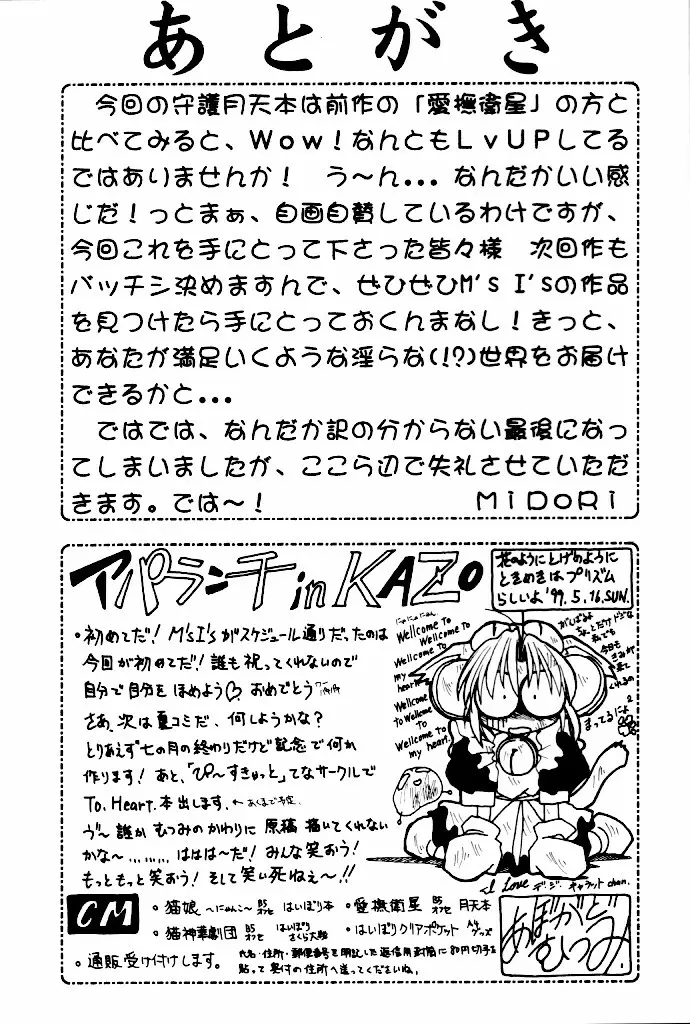 あとがき
今回の守護月天本は前作の「愛撫衛星」の方と
比べてみると、Wow!なんともLvUPしてる
ではありませんか! う〜ん... なんだかいい感
じだ!っとまぁ、自画自賛しているわけですが、
今回これを手にとって下さった皆々様 次回作も
バッチシ決めますんで、ぜひぜひM's I'sの作品
を見つけたら手にとっておくんまなし!きっと、
あなたが満足いくような淫らな(!?)世界をお届け
できるかと...
ではでは、なんだか訳の分からない最後になっ
てしまいましたが、ここら辺で失礼させていただ
きます。では〜! MiDoRi
アパランチ in KAZo
花のようにとげのように
ときめきはプリズム
らしいよ '99.5.16.SUN.
・初めてだ! M'sI'sがスケジュール通りだったのは
今回が初めてだ!誰も祝ってくれないので
自分で自分をほめよう♡ おめでとう
さあ、次は夏コミだ、何しようかな?
とりあえず七の月の終わりだけど記念で何か
作ります! あと、「ぴ〜すきゅっと」てなサークルで
To. Heart. 本出します. ←あくまで予定.
う〜 誰か むつみのかわりに 原稿 描いてくれない
かな〜......... ははは〜だ! みんな笑おう!
もっともっと笑おう! そして笑い死ねぇ〜!!
にゃにゃにゃん
Welcome To
Welcome To
Welcome To
my heart
Welcome
To Welcome
To
Welcome To
my heart.
がんばるよ
ちょとだけドジな
私でも
今日も
きみが
来て
くれるの
まってるにょ
I Love デ・ジ・キャラット chan.
CM
・猫娘 〜にゃんこ〜 B5 オフセ はいぱり本
・愛撫衛星 B5 オフセ 月天本
・猫神華劇団 B5 オフセ はいぱり さくら大戦
・はいぱりクリアポケット A4 グッズ
・通販受け付けします。
氏名・住所・郵便番号を明記した返信用封筒に80円切手を
貼って奥付の住所へ送ってくださいね.
あぼがど
むつみ